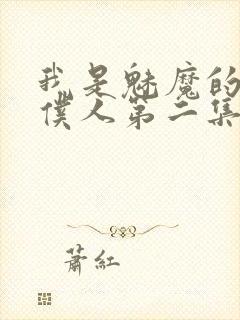 我是魅魔的
僕人第二集
蕭紅